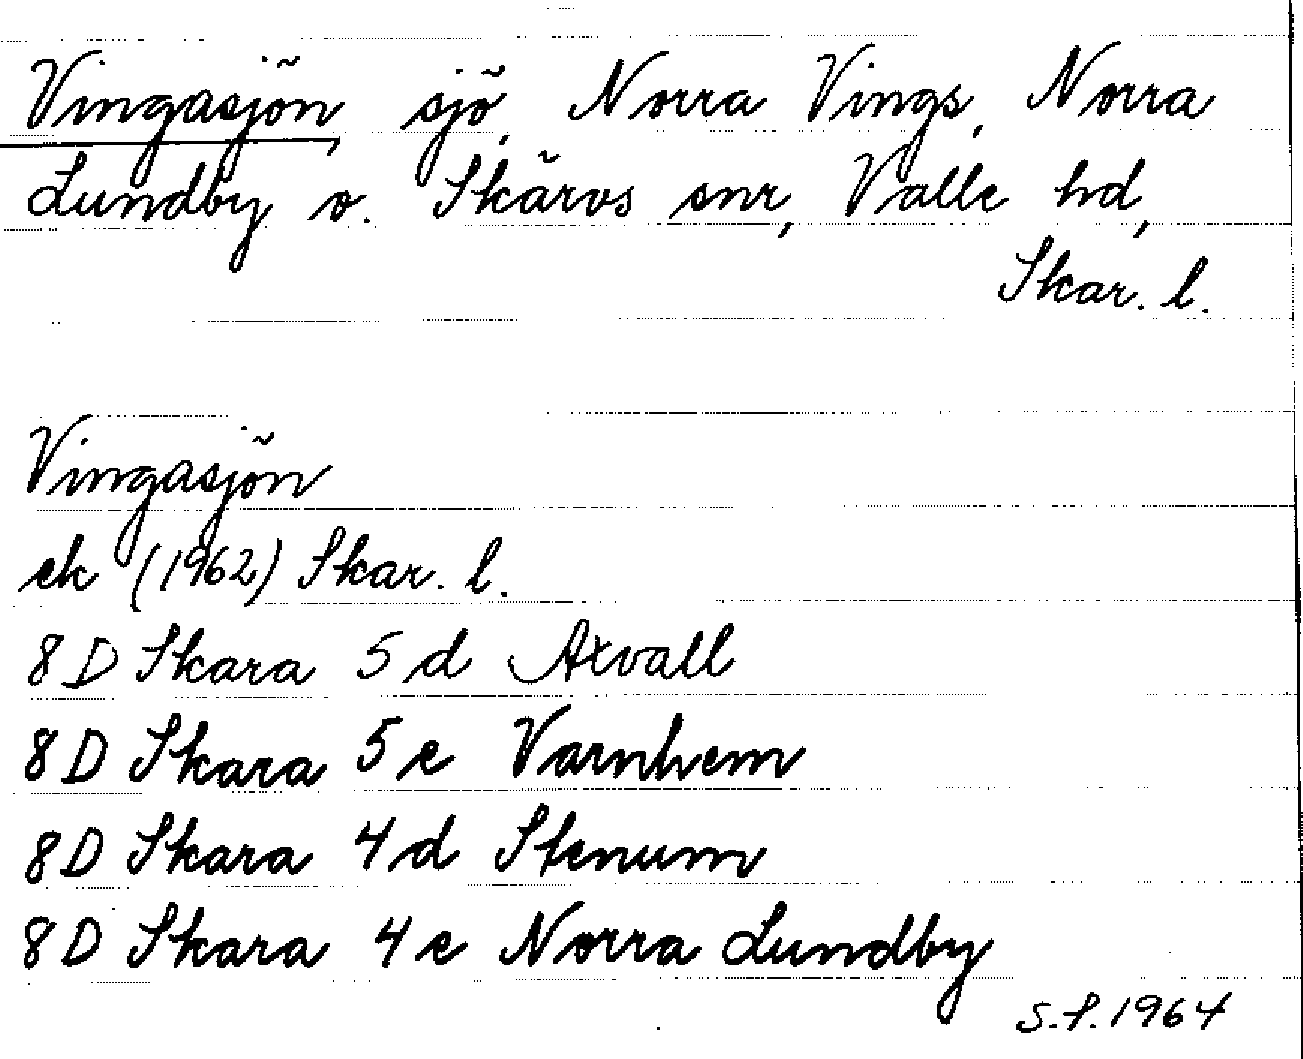 Vingasjön, sjö, Norra Vings, Norra
Lundby o. Skärvs snr, Valle hd,
Skar. l.
Vingasjön
ek (1962) Skar. l.
8 D Skara 5 d Axvall
8 D Skara 5 e Varnhem
8 D Skara 4 d Stenum
8 D Skara 4 e Norra Lundby
S.F. 1964